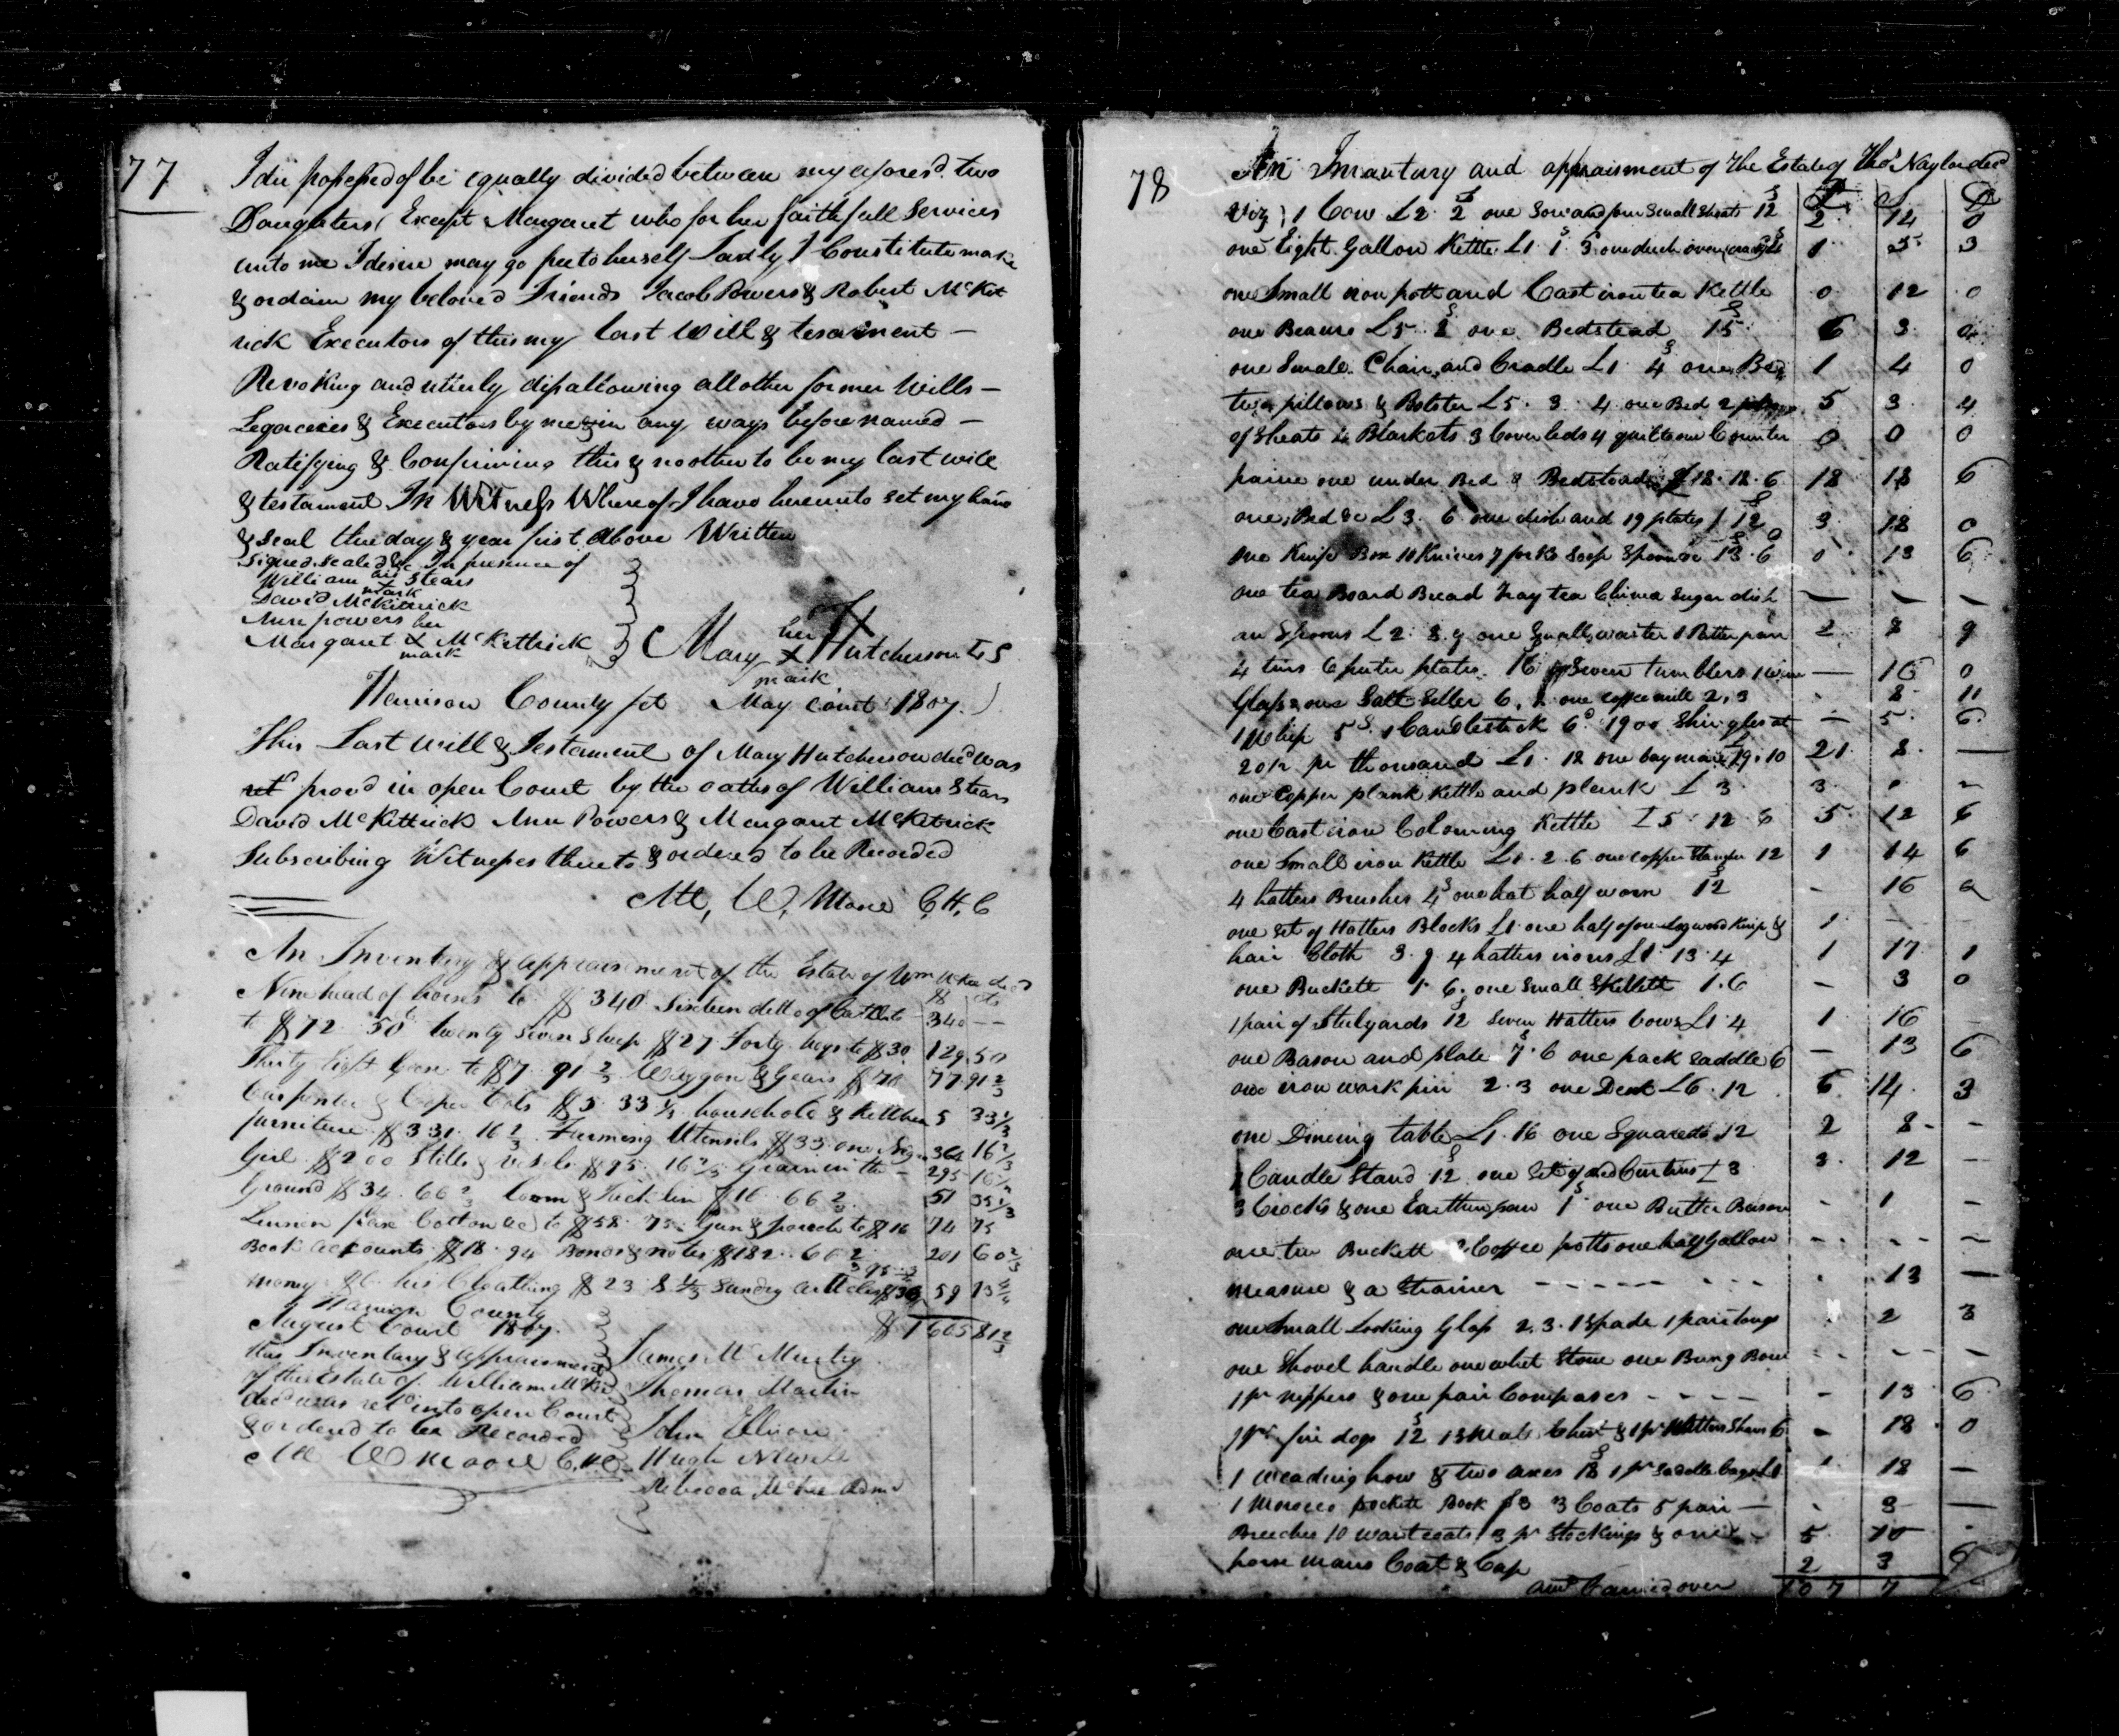 77
I die possessed of be equally divided between my aforesd. two
Daughters Except Margaret who for her faithfull Services
unto me I desire may go free to herself Lastly I Constitute make
& ordain my beloved Friends Jacob Powers & Robert McKit
rick Executors of this my last Will & tesament —
Revoking and utterly disallowing all other former Wills —
Legaceies & Executors by me in any ways before named —
Ratifying & Confirming this & no other to be my last will
& testament In Witness Whereof I have hereunto set my hand
& seal the day & year first above Written
Signed Sealed &c In presence of
William his x mark Stears
David McKittrick
Ann powers
Margaret her x mark McKettrick
Mary her x mark Hutcherson LS
Harrison County sct May Court 1807.
This Last Will & Testament of Mary Hutcherson decd was
prov'd in open Court by the oaths of William Stears
David McKittrick Ann Powers & Margaret McKetrick
Subscribing Witnesses thereto & ordered to be Recorded
Att, W, Moore C, H, C
An Inventory & appraisment of the Estate of Wm McKee decd
Nine head of horses to $340 Sixteen ditto of Cattle 340 —
to $72 50 twenty Seven Sheep $27 Forty hogs to $30 129.50
Thirty Eight Geese to $7 91 2/3 Waggon & Gears $70 77 91 2/3
Carpenter & Coper tools $5 33 1/3 household & Kitchen 5 33 1/3
furniture $331. 16 2/3 Farming Utensils $33 one 364 16 2/3
Girl $200 Stills & vessels $95. 16 2/3 Grain in the — 295 16 2/3
Ground $34. 66 2/3 Loom & Tacklin $16 66 2/3 51 33 1/3
Linnen flax Cotton &c to $58 75 Gun & pouch to $16 74 75
Book accounts $18. 94 Bonds & notes $182. 66 2/3 201 60 2/3
money his Cloathing $23 Sundry articles 59
$1605 81 2/3
Harrison County
August Court 1807.
this Inventory & appraisment
of the Estate of William McKee
decd was retd into open Court
& ordered to be Recorded
Att W Moore C.H.C.
James McMurtry
Thomas Martin
John Ellison
Hugh Newell
Rebecca McKee Adm
78
An Invantory and appraisment of The Estate of Thos Naylor decd
£ S D
Viz 1 Cow £2. 2 one Sow and four Small Shoats 12 2 14 0
one Eight Gallon Kettle £1 1 3 one duch oven 1 5 3
one Small iron pott and Cast iron tea Kettle 0 12 0
one Beaure £5. 8 one Bedstead 15 6 3 0
one Small Chair and Cradle £1 4 one Bed 1 4 0
two pillows & Bolster £5. 3. 4 one Bed 2 5 3 4
of Sheats 4 Blankets 3 Coverleds 4 quilts one Counter 0 0 0
paine one under Bed & Bedstead £18. 18. 6 18 18 6
one Bed &c £3. 6 one dish and 19 plates 12 3 18 0
one Knife Box 10 Knives 7 forks Soop Spoon &c 13. 6 0 13 6
one tea Board Bread Tray tea China Sugar dish — — —
an Spoons £2. 8. 9 one Small waiter 1 Patter pan 2 8 9
4 tins 6 puter plates 16 Seven tumblers 1 wine — 16 0
Glass & one Salt Seller 6. one coffee mill 2, 3 - 8 11
1 Whip 5 S. 1 Candlestick 6d 1900 Shingles at — 5 6
20/ pr thousand £1. 18 one bay mare £19. 10 21 8 —
one Copper plank Kettle and plank £3 3 0 —
one Cast iron Colouring Kettle £5. 12 6 5 12 6
one Small iron Kettle £1. 2. 6 one copper 12 1 14 6
4 hatters Brushes 4 one hat half worn 12 - 16 0
one Set of Hatters Blocks £1 one half of one &  1 — —
hair Cloth 3. 9 4 hatters irons £1 13. 4 1 17 1
one Buckett 1 6. one Small Skillett 1. 6 — 3 0
1 pair of Stilyards 12 Seven Hatters bows £1 4 1 16 —
one Bason and plate 7. 6 one pack Saddle 6 — 13 6
one iron work pin 2. 3 one Desk £6. 12 6 14. 3
one Dineing table £1. 16 one Square do 12 2 8 -
1 Candle Stand 12 one Set of Bed Curtins £3 3 12 —
3 Crocks & one Earthen pan 1 one Butter Bason - 1 —
one tin Buckett 2 Coffee potts one half Gallon - - -
measure & a Strainer - - - - - - . 13 —
one Small Looking Glass 2. 3. 1 Spade 1 pair tongs . 2 3
one Shovel handle one whet Stone one Bung Bore - - -
1 pr nippers & one pair Compases - - - - - 13 6
1 pr fire dogs 12 & 1 pr Hatters Shears 6 - 18 0
1 weading how & two axes 18 1 pr Saddle bags £1 1 18 —
1 Morocco pockett Book 3 3 Coats 5 pair — - 3 —
Breeches 10 waistcoats 3 pr Stockings & one 5 10 -
horse mans Coat & Cap 2 3 6
amt Carried over 107 7